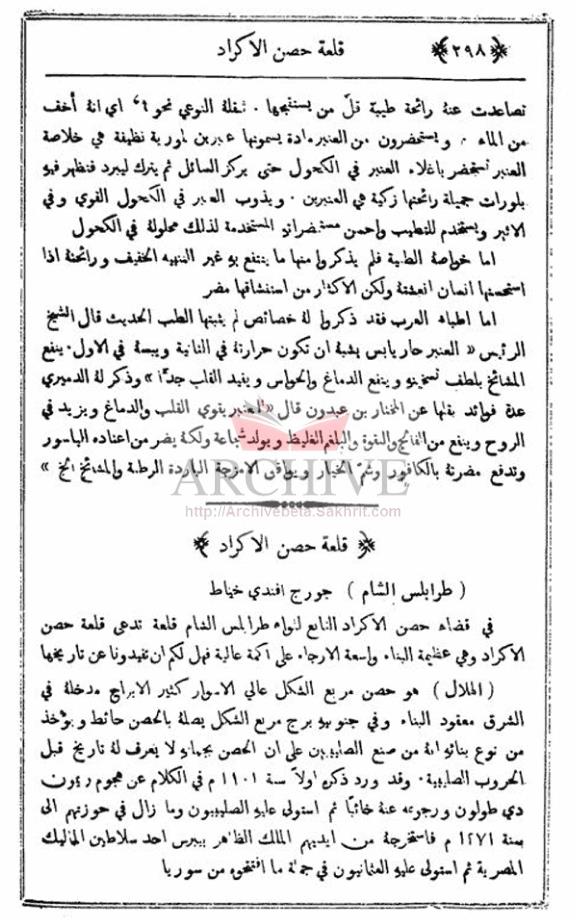 ﴿٢٩٨﴾ قلعة حصن الاكراد
تصاعدت عنهُ رائحة طيبة قلّ من يستقبحها . ثقلهُ النوعي نحو اي انهُ أخف
من الماء ، ويستحضرون من العنبر مادة يسمونها عنبرين بلورية نظيفة هي خلاصة
العنبر تستحضر باغلاء العنبر في الكحول حتى يركز السائل ثم يترك ليبرد فتظهر فيهِ
بلورات جميلة رائحتها زكية هي العنبرين . ويذوب العنبر في الكحول القوي وفي
الاثير ويستخدم للتطيب واحسن مستحضراتهِ المستخدمة لذلك محلولهُ في الكحول
اما خواصهُ الطبية فلم يذكروا منها ما ينتفع بهِ غير التنبيه الخفيف ورائحتهُ اذا
استحسنها انسان انعشتهُ ولكن الاكثار من استنشاقها مضر
اما اطباء العرب فقد ذكروا لهُ خصائص لم يثبتها الطب الحديث قال الشيخ
الرئيس « العنبر حار يابس يشبه ان تكون حرارتهُ في الثانية ويبسهُ في الاول . ينفع
المشائخ بلطف تسخينهِ وينفع الدماغ والحواس ويفيد القلب جدًّا » وذكر لهُ الدميري
عدة فوائد نقلها عن المختار بن عبدون قال « العنبر يقوي القلب والدماغ ويزيد في
الروح وينفع من الفالج واللقوة والبلغم الغليظ ويولد شجاعة ولكنهُ يضر من اعتاده الباسور
وتدفع مضرتهُ بالكافور وشمّ الخيار ويوافق الامزجة الباردة الرطبة والمشائخ الخ »
ARCHIVE
http://Archivebeta.Sakhrit.com
﴿ قلعة حصن الاكراد ﴾
( طرابلس الشام ) جورج افندي خياط
في قضاء حصن الاكراد التابع للواء طرابلس الشام قلعة تدعى قلعة حصن
الاكراد وهي عظيمة البناء واسعة الارجاء على اكمة عالية فهل لكم ان تفيدونا عن تاريخها
( الهلال ) هو حصن مربع الشكل عالي الاسوار كثير الابراج مدخلهُ في
الشرق معقود البناء وفي جنوبيهِ برج مربع الشكل يصلهُ بالحصن حائط ويؤخذ
من نوع بنائهِ انهُ من صنع الصليبيين على ان الحصن بجملتهِ لا يعرف لهُ تاريخ قبل
الحروب الصليبية . وقد ورد ذكره اولاً سنة ١١٠١ م في الكلام عن هجوم ريمون
دي طولون ورجوعه عنهُ خائبًا ثم استولى عليهِ الصليبيون وما زال في حوزتهم الى
سنة ١٢٧١ م فاستخرجهُ من ايديهم الملك الظاهر بيبرس احد سلاطين المماليك
المصرية ثم استولى عليهِ العثمانيون في جملة ما افتتحوه من سوريا